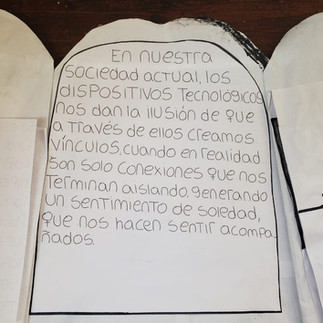 En nuestra
sociedad actual, los
dispositivos tecnológicos
nos dan la ilusión de que
a través de ellos creamos
vínculos, cuando en realidad
son solo conexiones que nos
terminan aislando, generando
un sentimiento de soledad,
que nos hacen sentir acompa-
ñados.